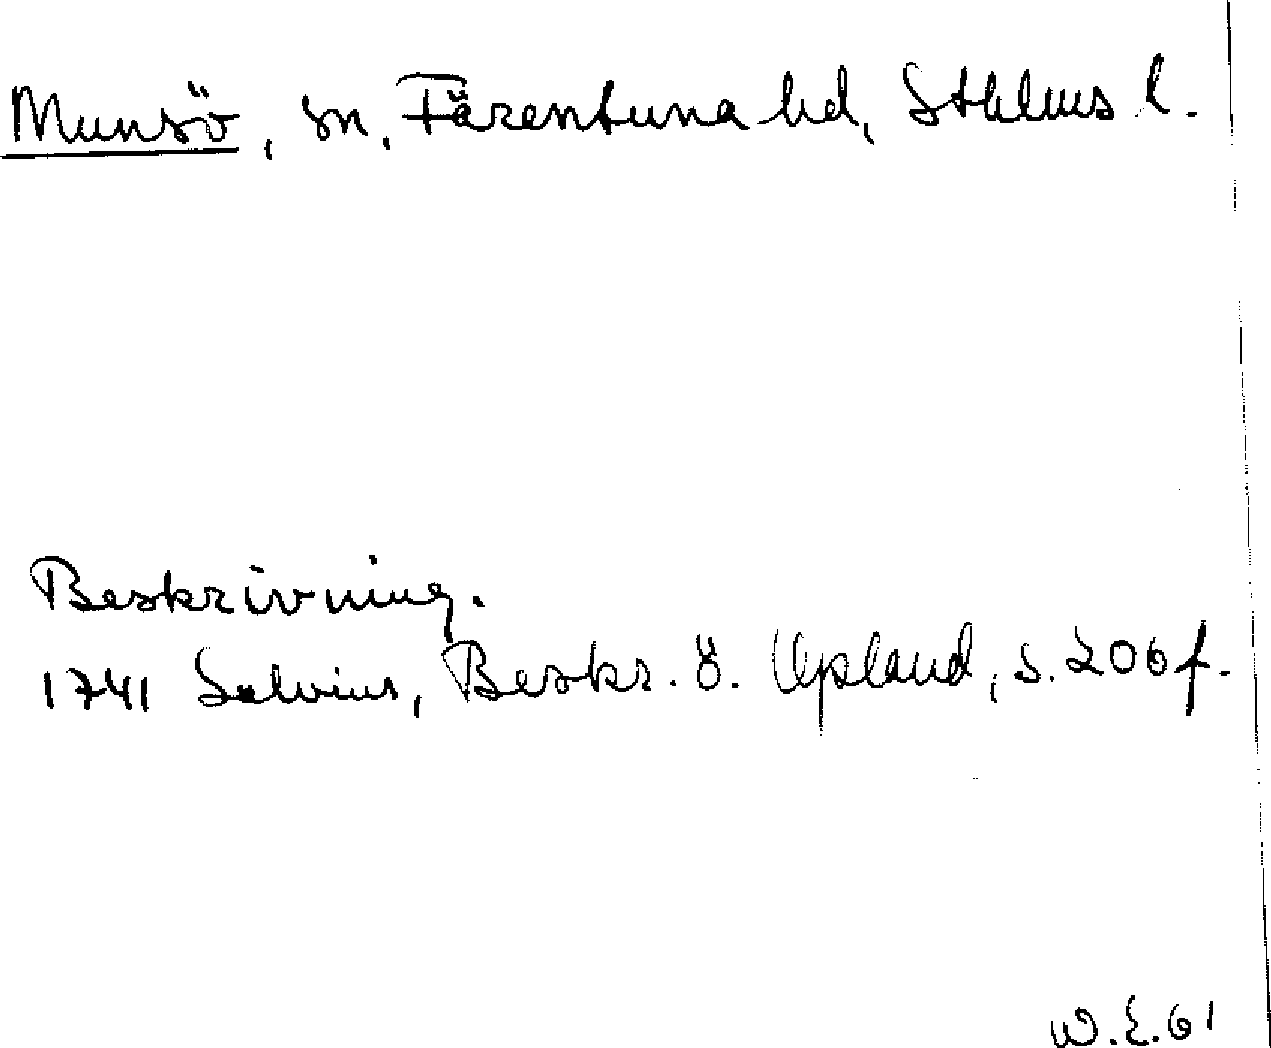 Munsö, sn, Färentuna hd, Sthlms l.
Beskrivning.
1741 Salvius, Beskr. ö. Upland, s. 206 f.
W.E. 61